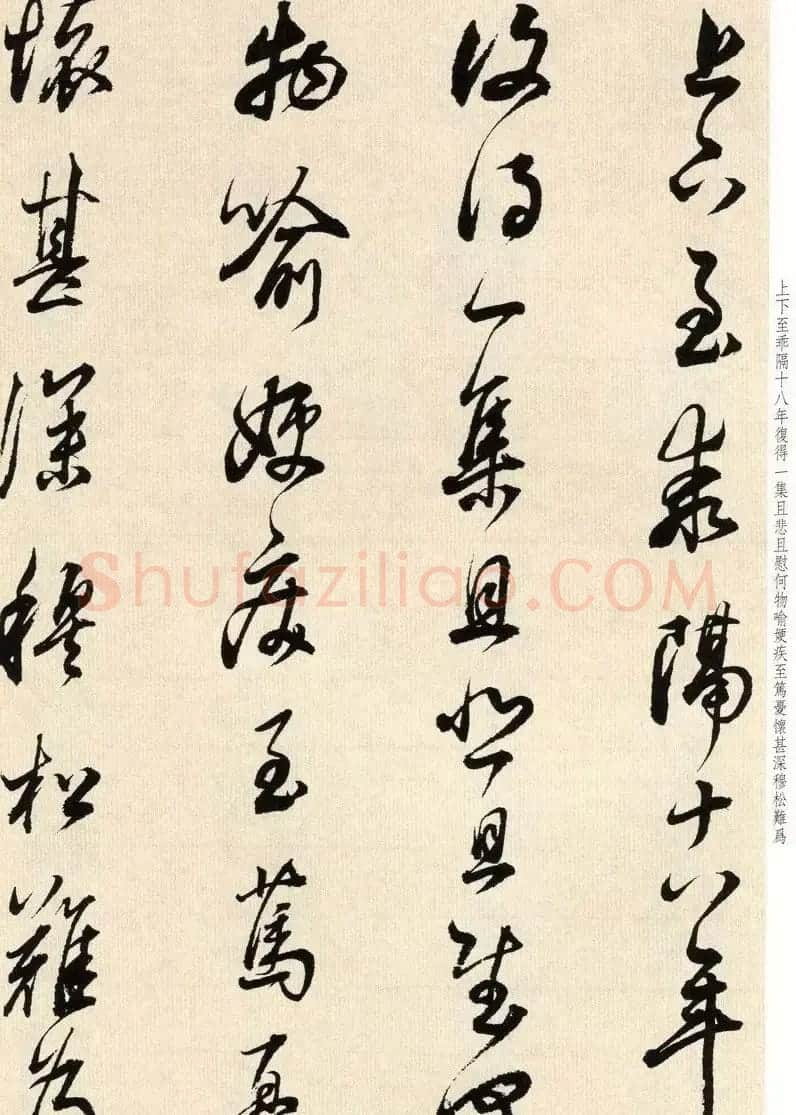 上下至乖隔十八年
復得一集且悲且慰何
物喻嫂疾至篤憂
懷甚深穆松難為
上下至乖隔十八年復得一集且悲且慰何物喻嫂疾至篤憂懷甚深穆松難爲
Shufaziliao.COM